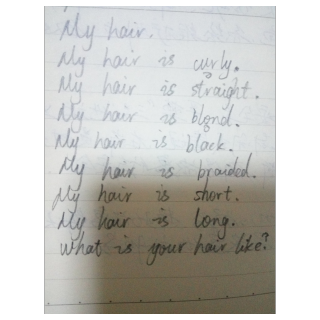 My hair.
My hair is curly.
My hair is straight.
My hair is blond.
My hair is black.
My hair is braided.
My hair is short.
My hair is long.
What is your hair like?